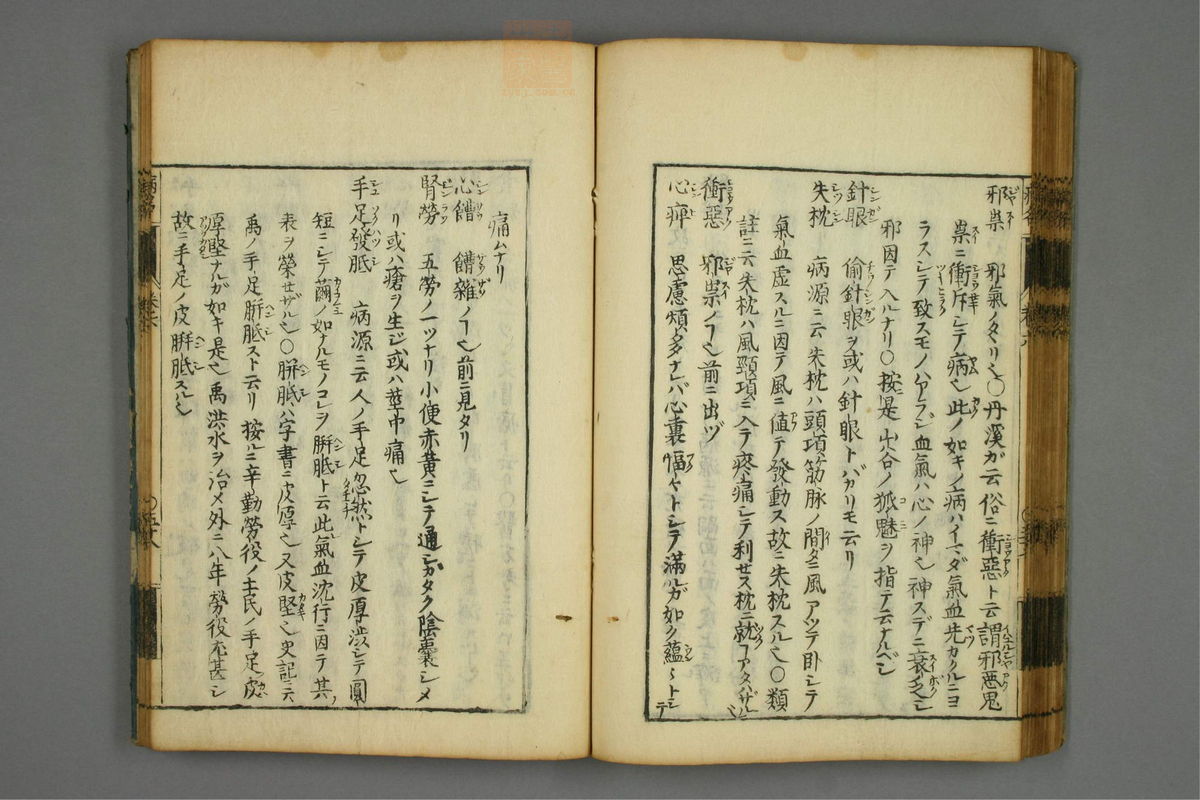 邪祟 邪氣ノタヽリ也〇丹溪ガ云俗ニ衝惡ト云謂邪惡鬼
祟ニ衝斥シテ病也此ノ如キノ病ハイマダ氣血先カクルニヨ
ラスシテ致スモノハアラジ血氣ハ心ノ神也神スデニ衰乏シ
邪因テ入ルナリ〇按是山谷ノ狐魅ヲ指テ云ナルベシ
針眼 偷針眼ヲ或ハ針眼トバカリモ云リ
失枕 病源ニ云失枕ハ頭項筋脉ノ間タニ風アツテ卧シテ
氣血虚スルニ因テ風ニ値テ發動ス故ニ失枕スル也〇類
註ニ云失枕ハ風頸項ニ入テ疼痛シテ利セス枕ニ就ヿアタハザル也
衝惡 邪祟ノヿ也前ニ出ヅ
心痺 思慮煩多ナレバ心裏愊々トシテ滿ルガ如ク蘊々トシテ
痛ムナリ
心饐 饐雜ノヿ也前ニ見タリ
腎勞 五勞ノ一ツナリ小便赤黄ニシテ通シガタク陰囊シメ
リ或ハ瘡ヲ生ジ或ハ莖中痛也
手足發胝 病源ニ云人ノ手足忽然トシテ皮厚澁シテ圓
短ニシテ繭ノ如ナルモノコレヲ胼胝ト云此氣血沈行ニ因テ其
表ヲ榮セザル也〇胼胝ハ字書ニ皮厚也又皮堅也史記ニ云
禹ノ手足胼胝スト云リ 按ルニ辛勤勞役ノ土民ノ手足皮
厚堅ナルガ如キ是也禹洪水ヲ治メ外ニ八年勞役尤甚シ
故ニ手足ノ皮胼胝スル也